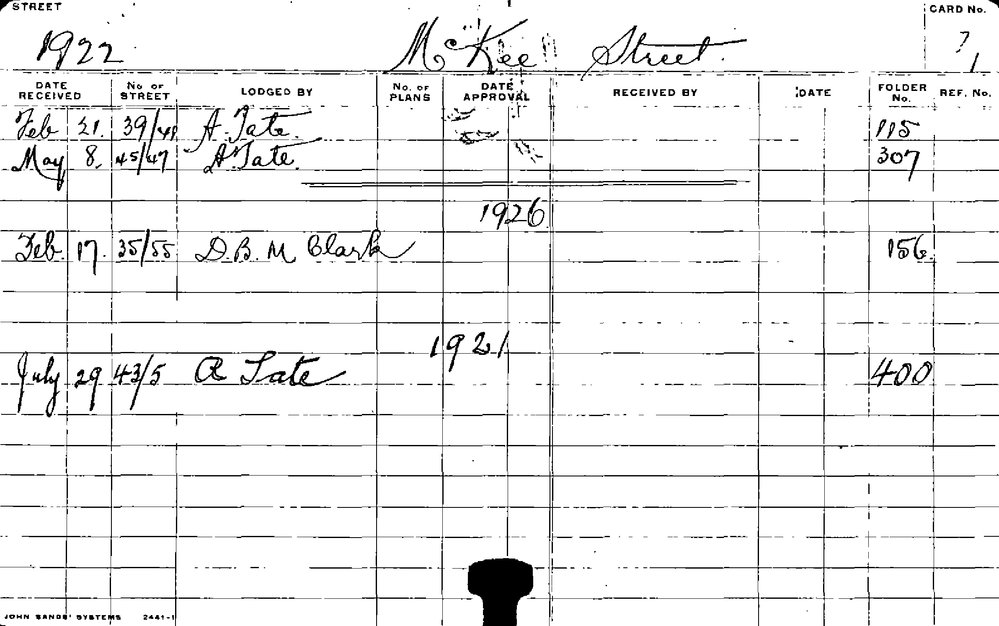 STREET CARD No.
1922 McKee Street. 1
DATE RECEIVED No OF STREET LODGED BY No. OF PLANS DATE APPROVAL RECEIVED BY DATE FOLDER No. REF. No.
Feb 21. 39/41 A. Tate. 115
May 8. 45/47 A. Tate. 307
1926
Feb. 17. 35/55 D. B. M Clark 156.
1921
July 29 43/5 R Tate 400
JOHN SANDS' SYSTEMS 2441-1